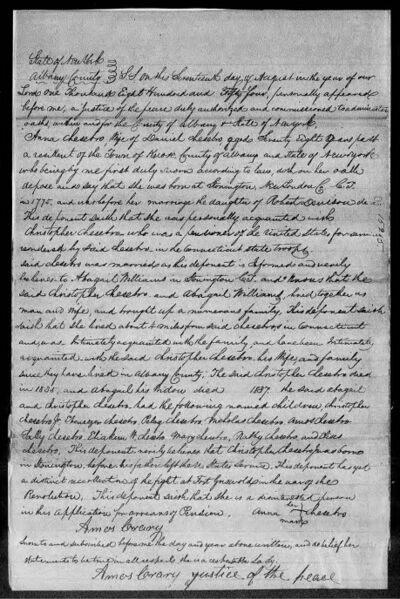 State of New York
Albany County SS On this Seventeenth day of August in the year of our
Lord One Thousand Eight Hundred and Fifty Four, personally appeared
before me, a Justice of the peace duly authorized and commissioned to administer
oaths, within and for the County of Albany & State of New York,
Anna Chesebro Wife of Daniel Chesebro aged Seventy Eight Years past
a resident of the Town of Knox, County of Albany and State of New York
who being by me first duly sworn according to law, doth on her oath
depose and say that she was born at Stonington, New London Co. CT.
in 1775, and was before her marriage the daughter of Robert Denison
This deponent saith that she was personally acquainted with
Christopher Chesebro who was a pensioner of the United States for services
rendered by said Chesebro in the Connecticut state troops
said Chesebro was married as this deponent is informed and verily
believes to Abagail Williams in Stonington CT. and knows that the
said Christopher Chesebro and Abagail Williams lived together as
man and Wife, and brought up a numerous family. This deponent saith
saith that she lived about 4 miles from said Chesebro in Connecticut
and was intimately acquainted with the family and has been intimately
acquainted with the said Christopher Chesebro, his Wife, and family
since they have lived in Albany County. The said Christopher Chesebro died
in 1835, and Abagail his Widow died 1837. The said Abagail
and Christopher Chesebro, had the following named children Christopher
Chesebro Jr. Ebenezer Chesebro Peleg Chesebro Nicholas Chesebro Amos Chesebro
Sally Chesebro, W. Chesebro Mary Chesebro, Chesebro and
Chesebro. This deponent verily believes that Christopher Chesebro Jr was born
in Stonington before his father left the Service. This deponent has yet
a distinct recollection of the fight at Fort Griswold in the war of the
Revolution. This deponent saith that she is a disinterested person
in his application for arrears of Pension. Anna her X mark Chesebro
Amos Crary
Sworn to and subscribed before me the day and year above written, and I believe her
statements to be true in all respects she is a respectable Lady.
Amos Crary justice of the peace